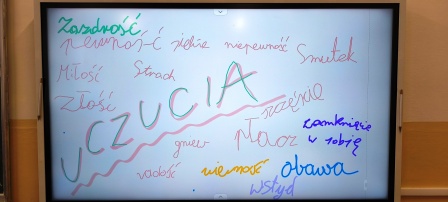 Zazdrość
pewność piękne niepewność Smutek
Miłość Strach
złość UCZUCIA szczęście
gniew płacz zamknięcie
w sobie
radość nierwność obawa
wstyd